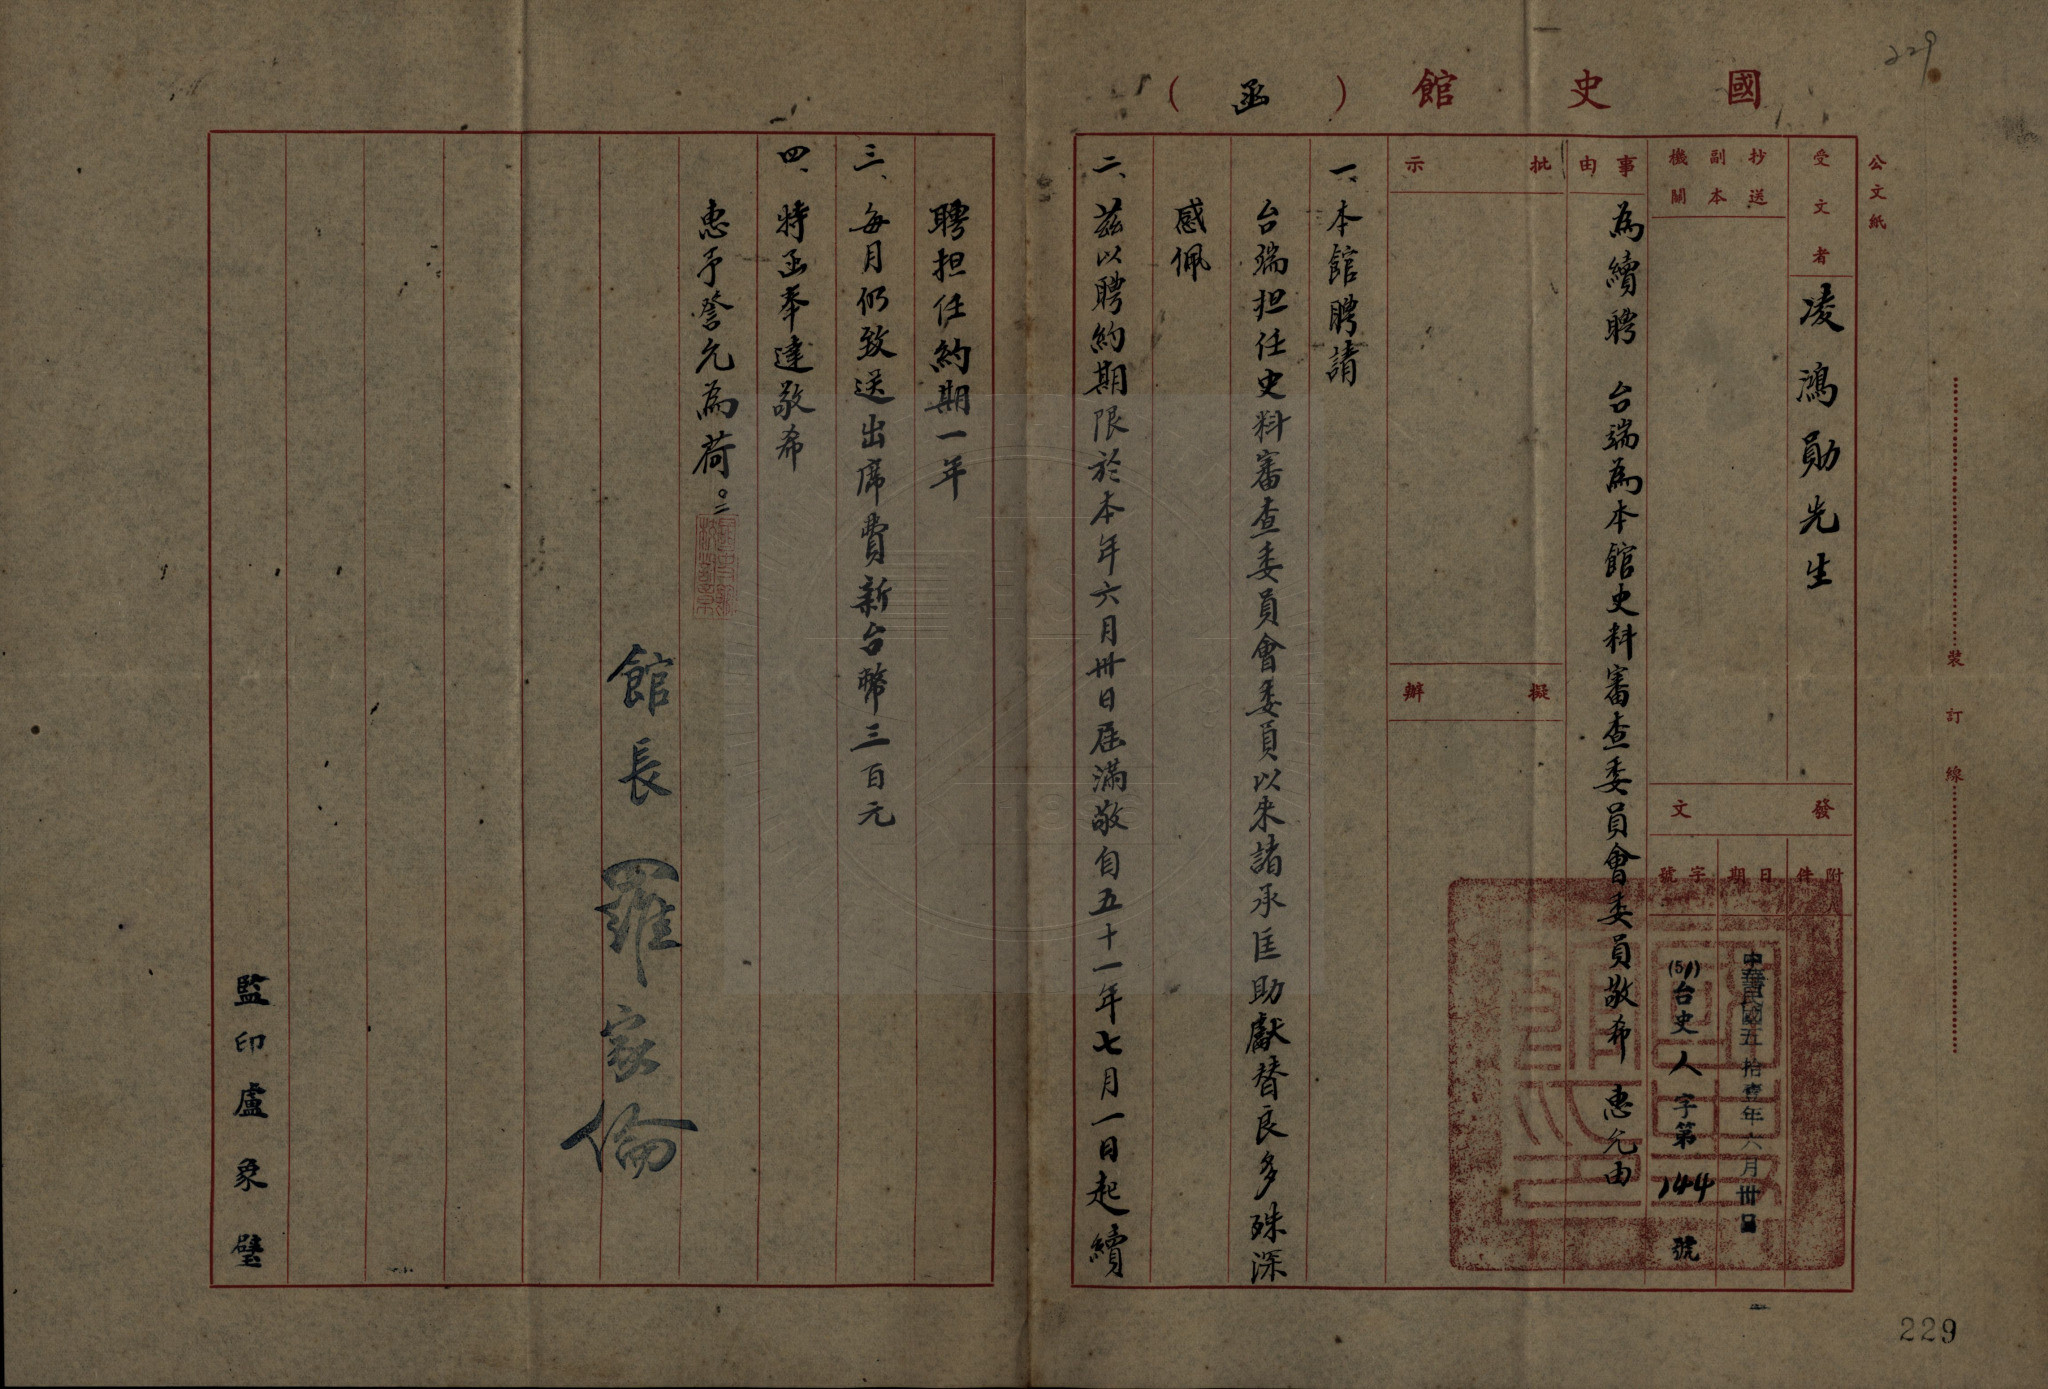 229
國史館（函）
公文紙
受文者
凌鴻勛先生
抄送副本機關
發文
附件
日期
中華民國五拾壹年六月卅日
字號
(51)台史人字第144號
事由
為續聘　台端為本館史料審查委員會委員敬希　惠允由
批示
擬辦
一、本館聘請
台端担任史料審查委員會委員以來諸承匡助獻替良多殊深
感佩
二、茲以聘約期限於本年六月卅日屆滿敬自五十一年七月一日起續
聘担任約期一年
三、每月仍致送出席費新台幣三百元
四、特函奉達敬希
惠予詧允為荷。
館長 羅家倫
監印盧象璧
裝訂線
229